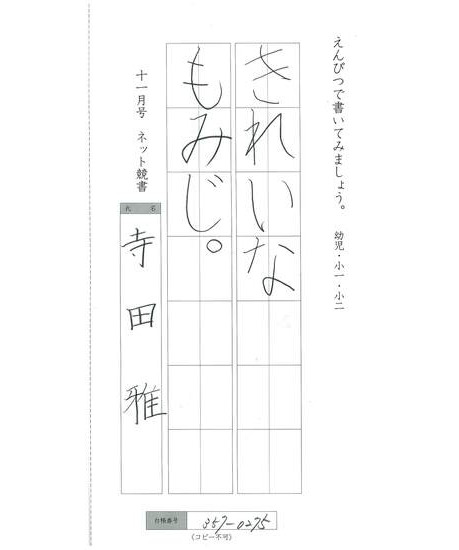 えんぴつで書いてみましょう。 幼児・小一・小二
きれいな
もみじ。
十一月号 ネット競書
氏名
寺田雅
台帳番号 357-0275
(コピー不可)